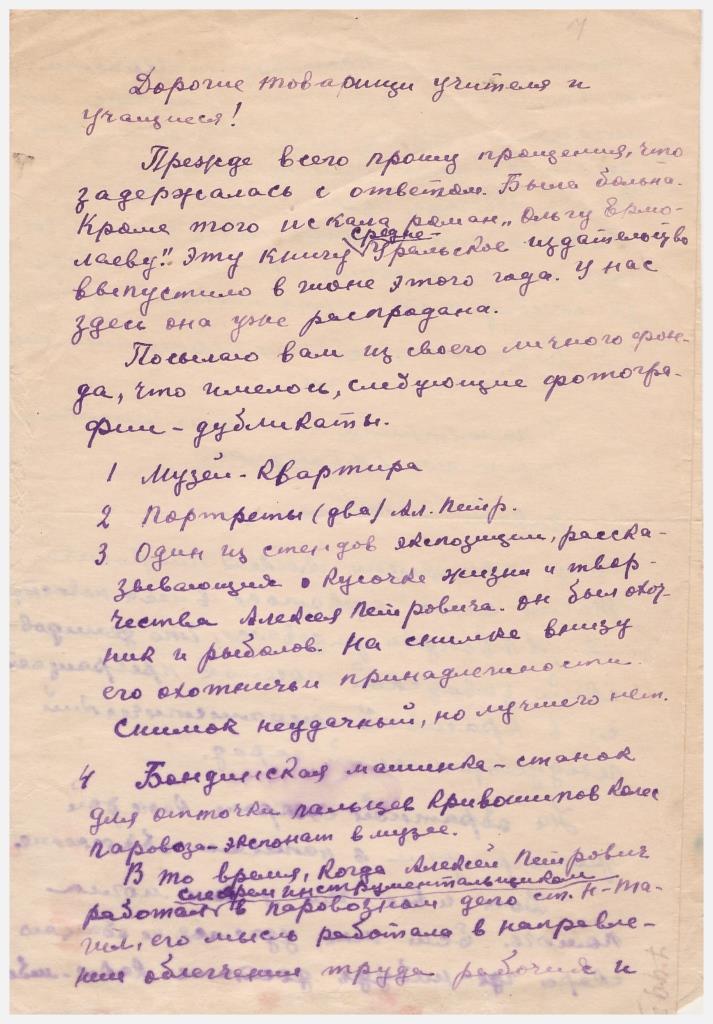 Дорогие товарищи учителя и
учащиеся!
Прежде всего прошу прощения, что
задержалась с ответом. Была больна.
Кроме того искала роман „Ольгу Ермо-
средне-
лаеву". Эту книгу Уральское издательство
выпустило в июне этого года. У нас
здесь она уже распродана.
Посылаю вам из своего личного фон-
да, что имелось, следующие фотогра-
фии - дубликаты.
1 Музей - квартира
2 Портреты (два) Ал. Петр.
3 Один из стендов экспозиции, расска-
зывающия о кусочке жизни и твор-
чества Алексея Петровича. Он был охот-
ник и рыболов. На снимке внизу
его охотничьи принадлежности.
Снимок неудачный, но лучшего нет.
4 Бондинская машинка - станок
для отточка пальцев кривошипов колес
паровоза - экспонат в музее.
В то время, когда Алексей Петрович
слесарем инструментальщиком
работал в паровозном депо ст. Н-Та-
гил, его мысль работала в направле-
нии облегчения труда рабочих и